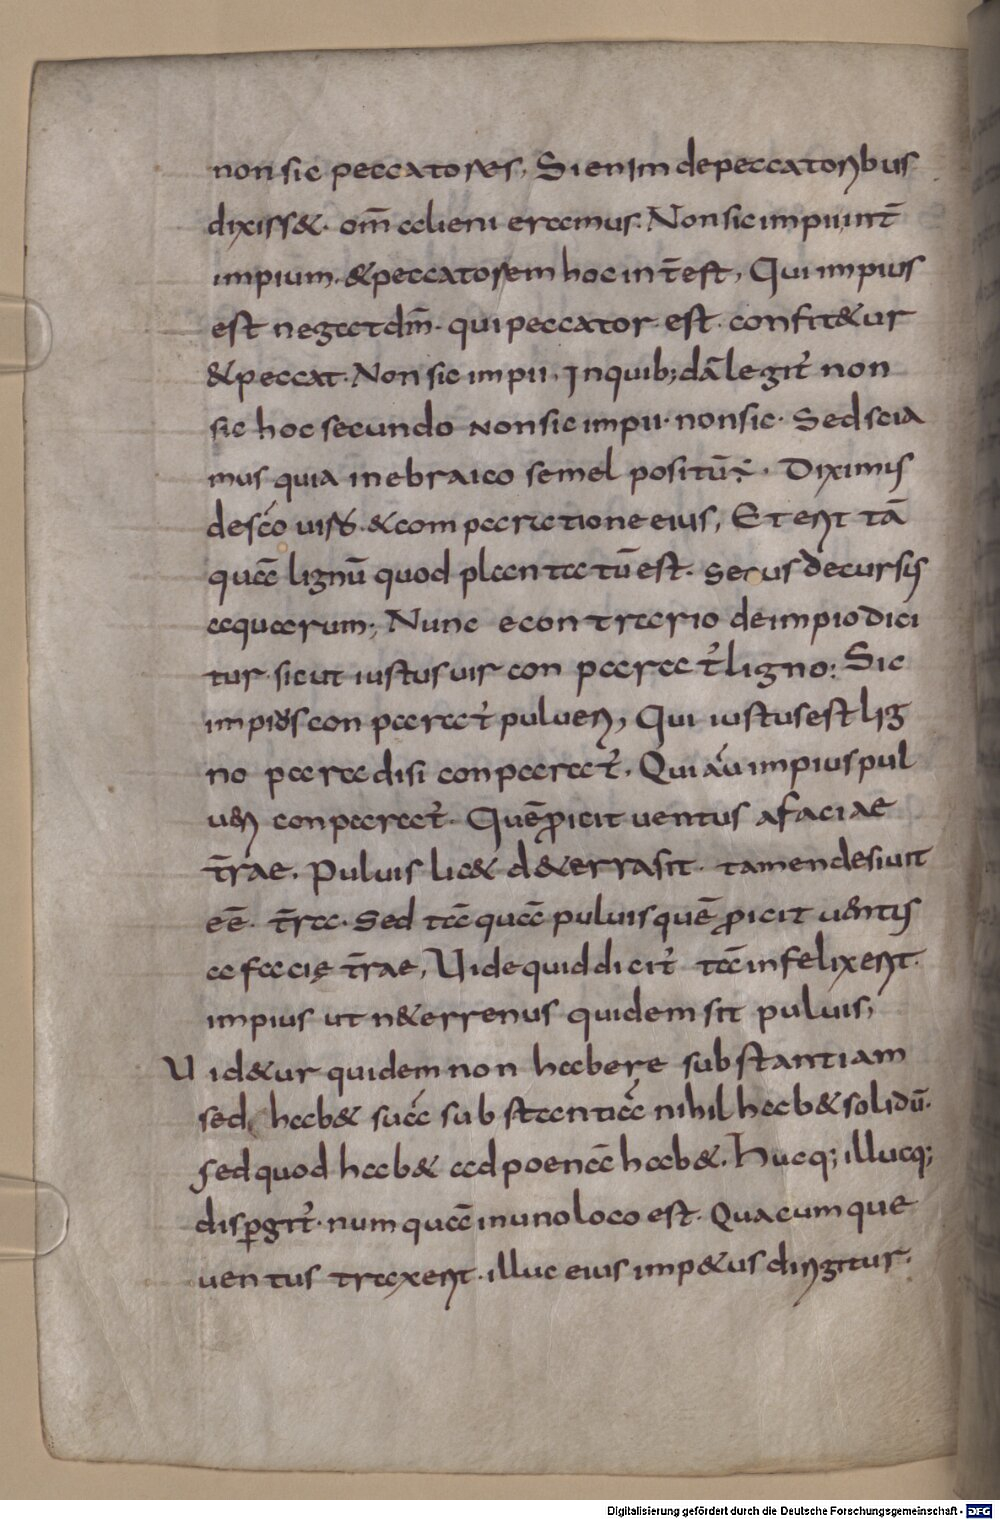 non sic peccatores, Si enim de peccatoribus
dixiss&. om̄ alieni eramus. Non sic impii, int̄
impium. & peccatorem hoc int̄ est, Qui impius
est negat dm̄. qui peccator est. confit&ur
& peccat. Non sic impii, Inquib; dā legit̉ non
sic hoc secundo Non sic impii. non sic. Sed scia
mus quia in ebraico semel positū ÷. Diximus
de sc̄o uiro. & comparatione eius, Et erit tā
quā lignū quod plantatū est. secus decursus
aquarum; Nunc econtrario de impio dici
tur. sicut iustus uir conparat̉ ligno: Sic
impius conparat̉ pulueri, Qui iustus est lig
no paradisi conparat̉. Qui aū impius pul
ueri conparat̉. Quē proicit uentus a faciae
t̄rae. Puluis lic& d& errasit. tamen desiuit
eē. t̄ra. Sed tā quā puluis quē proicit uentus
a facię t̄rae, Uide quid dicit̉ tā infelix erit.
impius ut n& errenus quidem sit puluis,
Uid&ur quidem non habere substantiam
sed hab& suā substantiā nihil hab& solidū.
sed quod hab& ad poenā hab&. Hucq; illucq;
disp̱git̉. num quā in uno loco est. Quacumque
uentus traxerit. illuc eius imp&us dirigitur.
Digitalisierung gefördert durch die Deutsche Forschungsgemeinschaft - DFG